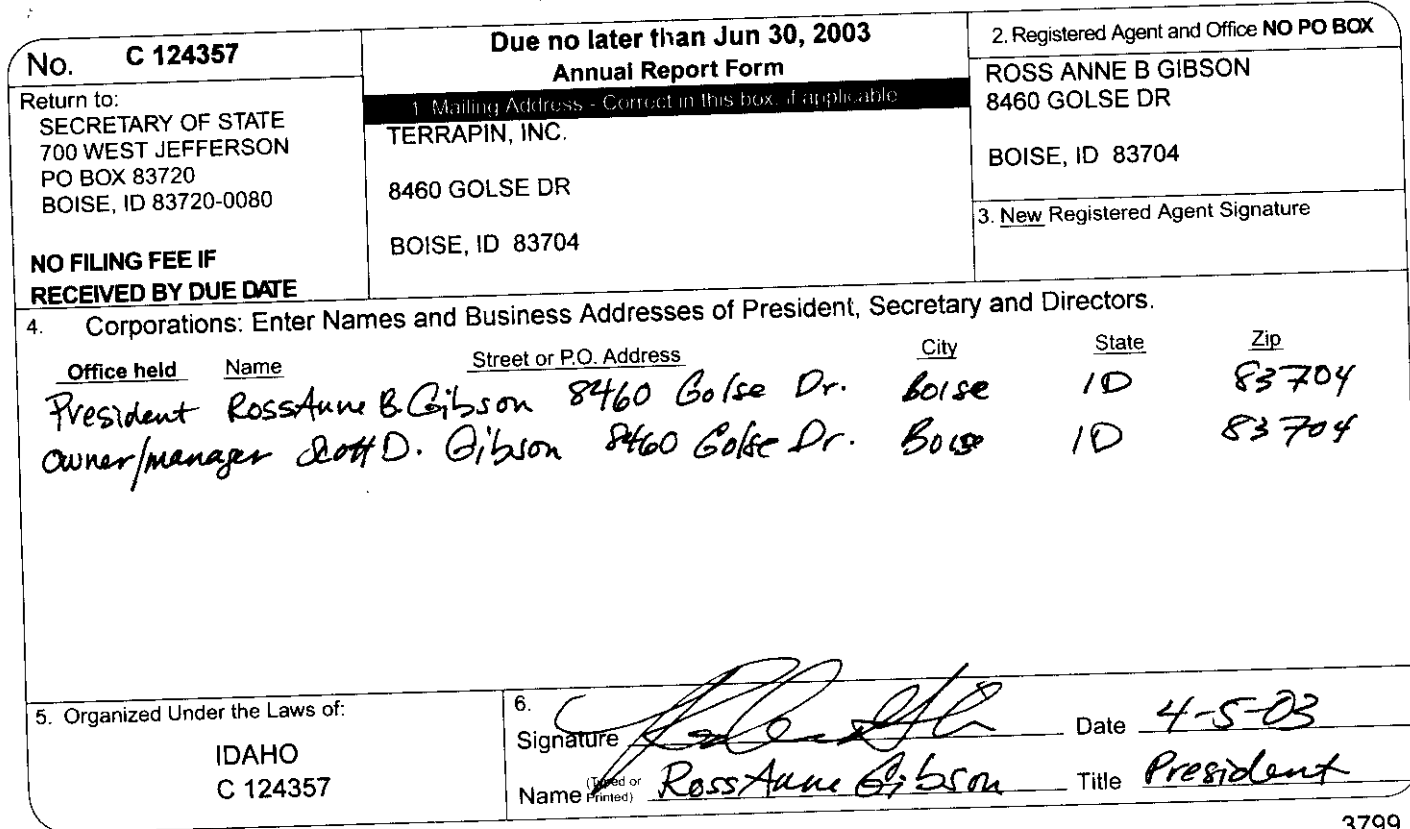 No. C 124357
Return to:
SECRETARY OF STATE
700 WEST JEFFERSON
PO BOX 83720
BOISE, ID 83720-0080
NO FILING FEE IF
RECEIVED BY DUE DATE
Due no later than Jun 30, 2003
Annual Report Form
1. Mailing Address - Correct in this box, if applicable
TERRAPIN, INC.
8460 GOLSE DR
BOISE, ID 83704
2. Registered Agent and Office NO PO BOX
ROSS ANNE B GIBSON
8460 GOLSE DR
BOISE, ID 83704
3. New Registered Agent Signature
4. Corporations: Enter Names and Business Addresses of President, Secretary and Directors.
Office held Name Street or P.O. Address City State Zip
President RossAnne B. Gibson 8460 Golse Dr. Boise ID 83704
Owner/manager Scott D. Gibson 8460 Golse Dr. Boise ID 83704
5. Organized Under the Laws of:
IDAHO
C 124357
6.
Signature Date 4-5-03
Name (Typed or Printed) RossAnne Gibson Title President
3799